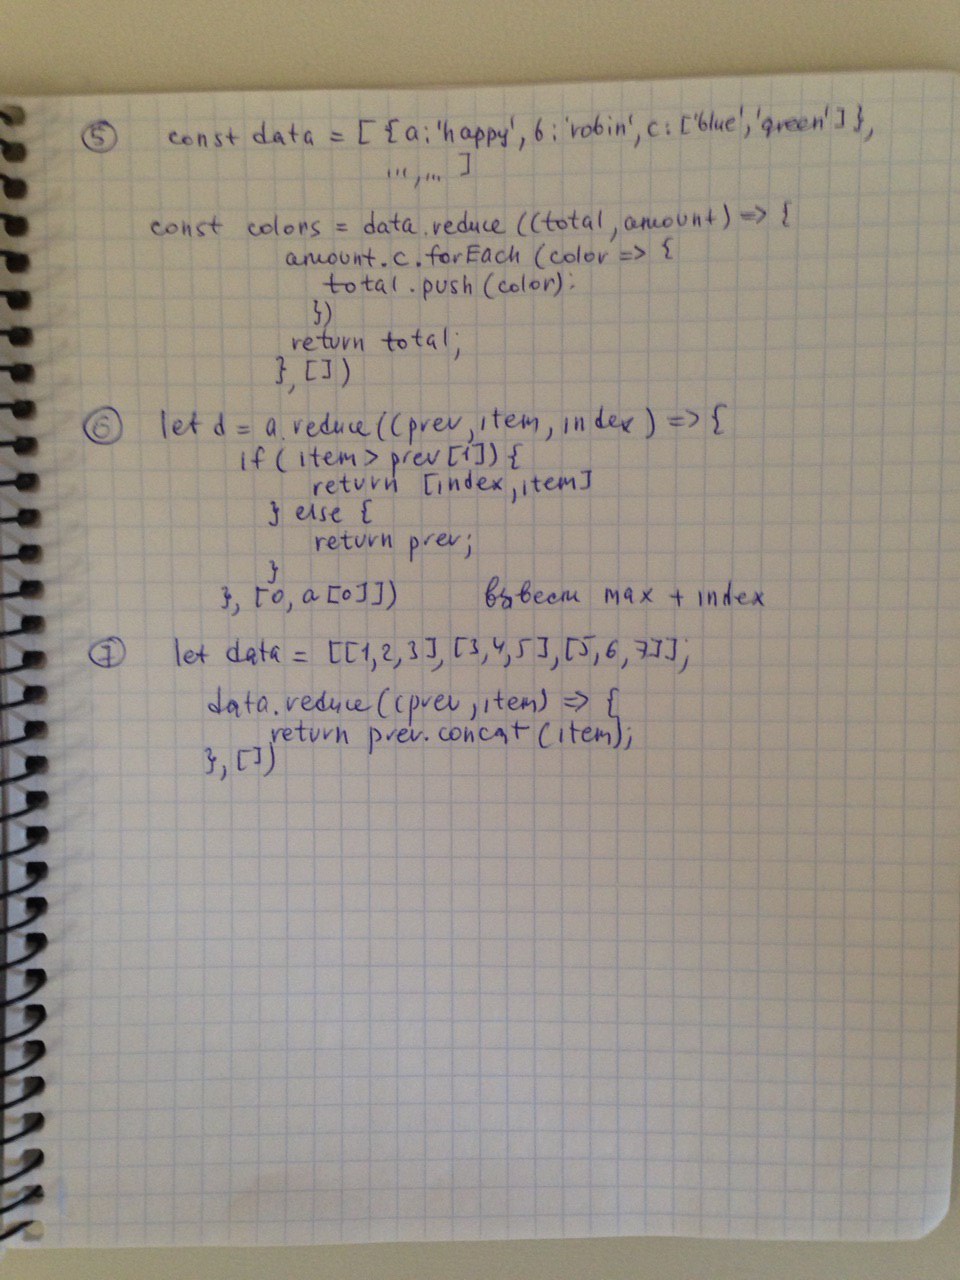 ⑤ const data = [ {a:'happy', b:'robin', c:['blue','green']},
...,... ]
const colors = data.reduce((total, amount) => {
amount.c.forEach (color => {
total.push(color);
})
return total;
}, [])
⑥ let d = a.reduce((prev, item, index) => {
if (item > prev[1]) {
return [index, item]
} else {
return prev;
}
}, [0, a[0]]) max + index
⑦ let data = [[1,2,3],[3,4,5],[5,6,7]];
data.reduce((prev, item) => {
return prev.concat(item);
}, [])